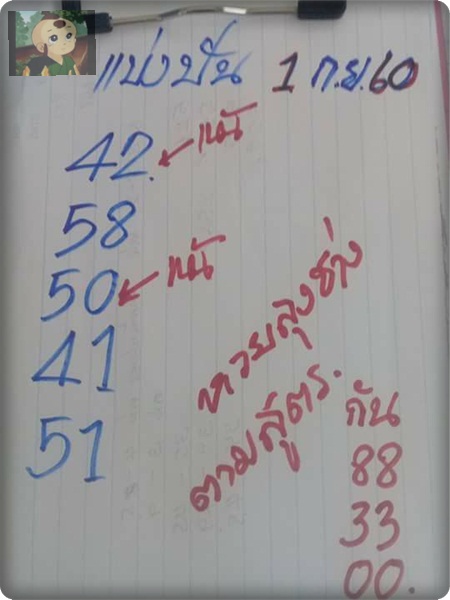 แบ่งปัน 1 ก.ย.60
42. เน้
58
50 เน้
41
51
หวยลุงช่าง
ตามสูตร.
กัน
88
33
00.